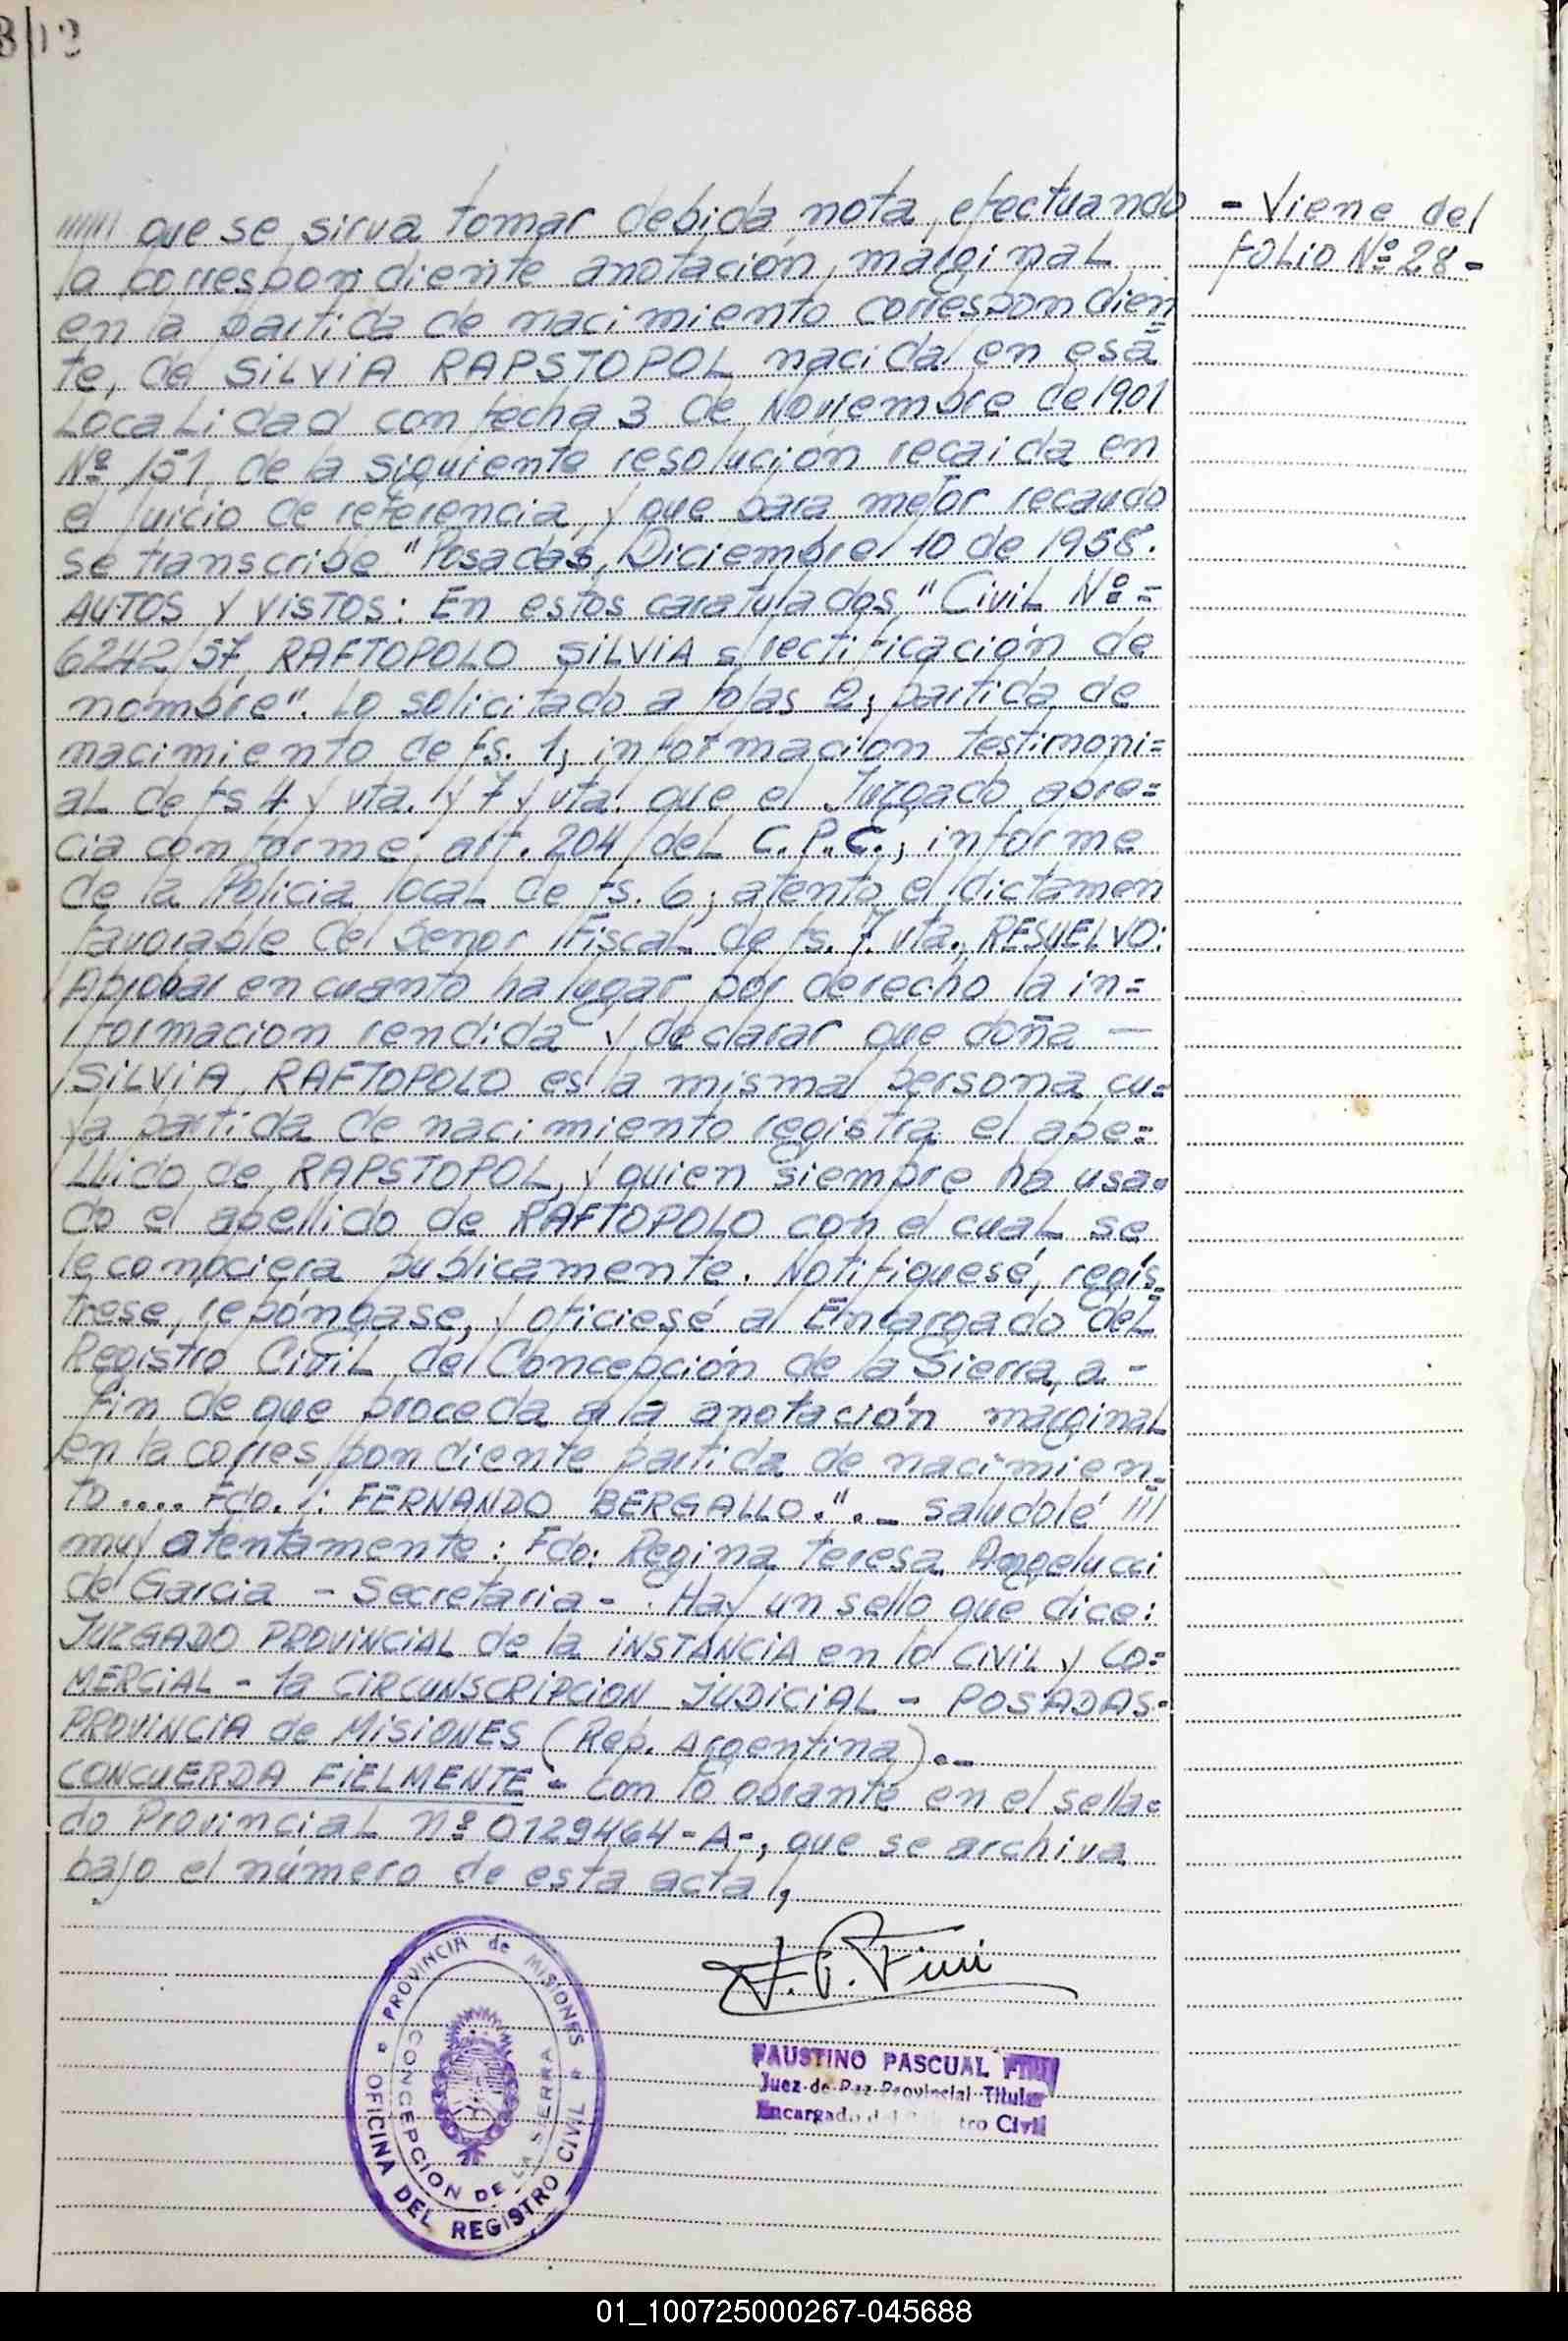 312
///// que se sirva tomar debida nota, efectuando
la correspondiente anotación, marginal
en la partida de nacimiento correspondien=
te, de SILVIA RAPSTOPOL nacida en esa
Localidad con fecha 3 de Noviembre de 1901
Nº 151, de la siguiente resolución recaida en
el juicio de referencia, y que para mejor recaudo
se transcribe "Posadas, Diciembre 10 de 1958.
AUTOS Y VISTOS: En estos caratulados "Civil Nº=
6242/57, RAFTOPOLO SILVIA s/rectificación de
nombre". Lo solicitado a fojas 2; partida de
nacimiento de fs. 1; informacilon testimoni=
al de fs 4 y vta. y 7 y vta. que el Juzgado apre=
cia conforme, art. 204 del C.P.C.; informe
de la Policia local de fs. 6; atento el dictamen
favorable del Senor Fiscal de fs. 7 vta., RESUELVO:
Aprobar en cuanto ha lugar por derecho la in=
formacion rendida y declarar que doña —
SILVIA RAFTOPOLO es la misma persona cu=
ya partida de nacimiento registra el ape=
llido de RAPSTOPOL, y quien siempre ha usa=
do el apellido de RAFTOPOLO con el cual se
le conociera publicamente. Notifiquesé, regís=
trese, repóngase, y oficiesé al Encargado del
Registro Civil del Concepción de la Sierra, a -
fin de que proceda a la anotación marginal
en la correspondiente partida de nacimien=
to.... Fdo.: FERNANDO BERGALLO.".- saludolé ///
muy atentamente: Fdo: Regina Teresa Angelucci
de Garcia - Secretaria - . Hay un sello que dice:
JUZGADO PROVINCIAL de 1a INSTANCIA en lo CIVIL y CO=
MERCIAL - 1a CIRCUNSCRIPCION JUDICIAL - POSADAS=
PROVINCIA de MISIONES (Rep. Argentina).-
CONCUERDA FIELMENTE - con lo obrante en el sella=
do Provincial nº 0129464-A-, que se archiva
bajo el número de esta acta.
- Viene del
FOLIO Nº 28 -
F. P. Fini
PROVINCIA de MISIONES
OFICINA DEL REGISTRO CIVIL
CONCEPCION DE LA SIERRA
FAUSTINO PASCUAL FINI
Juez de Paz Provincial Titular
Encargado del Registro Civil
01_100725000267-045688